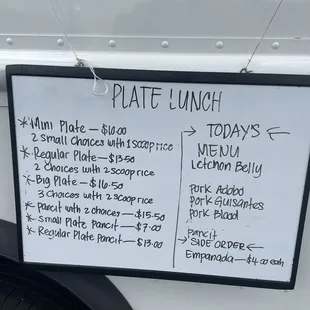 PLATE LUNCH
*Mini Plate — $10.00
2 small choices with 1 scoop rice
*Regular Plate — $13.50
2 choices with 2 scoop rice
*Big Plate — $16.50
3 choices with 2 scoop rice
*Pancit with 2 choices — $15.50
*Small Plate Pancit — $7.00
*Regular Plate Pancit — $13.00
→ TODAY'S ←
MENU
Letchon Belly
Pork Adobo
Pork Guisantes
Pork Blood
Pancit
→ SIDE ORDER ←
Empanada — $4.00 each